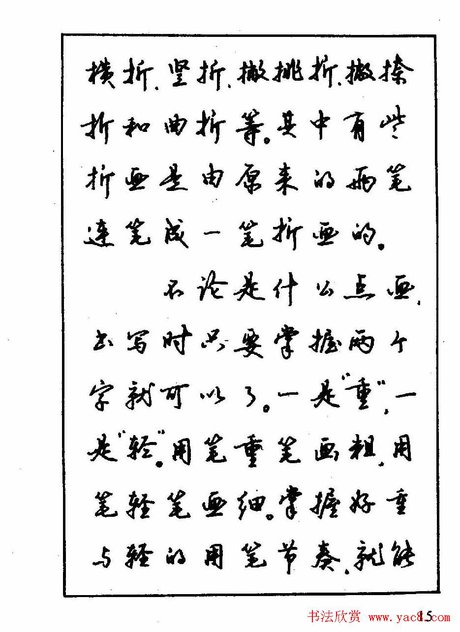 横折、竖折、撇挑折、撇捺
折和曲折等。其中有些
折画是由原来的两笔
连笔成一笔折画的。
不论是什么点画，
书写时只要掌握两个
字就可以了。一是“重”，一
是“轻”。用笔重笔画粗，用
笔轻笔画细。掌握好重
与轻的用笔节奏，就能
15
书法欣赏 www.yac8.com